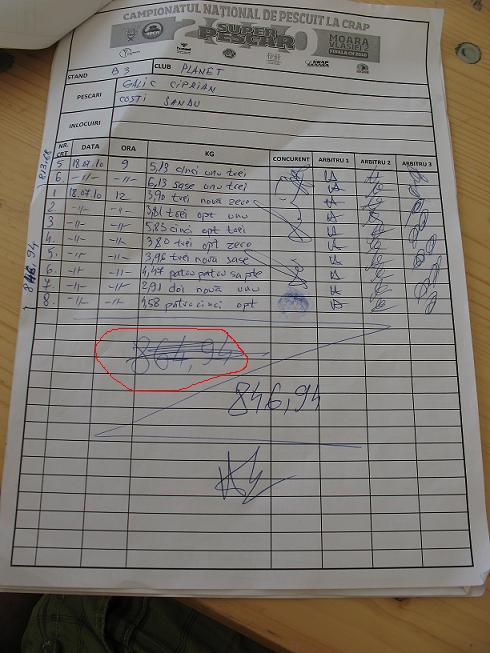 CAMPIONATUL NATIONAL DE PESCUIT LA CRAP
SUPER
PESCAR
MOARA
VLASIEI
STAND B3 CLUB PLANET
PESCARI GALIC CIPRIAN
COSTI SANDU
INLOCUIRI
NR. CRT DATA ORA KG CONCURENT ARBITRU 1 ARBITRU 2 ARBITRU 3
5 18.07.10 9 5,13 cinci unu trei
6. -//- -//- 6,13 sase unu trei
1 18.07.10 12 3,90 trei noua zero
2 -//- -//- 3,81 trei opt unu
3. -//- -//- 5,83 cinci opt trei
4. -//- -//- 3,80 trei opt zero
5. -//- -//- 3,96 trei noua sase
6. -//- -//- 4,47 patru patru sapte
7. -//- -//- 2,91 doi noua unu
8. -//- -//- 4,58 patru cinci opt
813,68
846,94
864,94
846,94